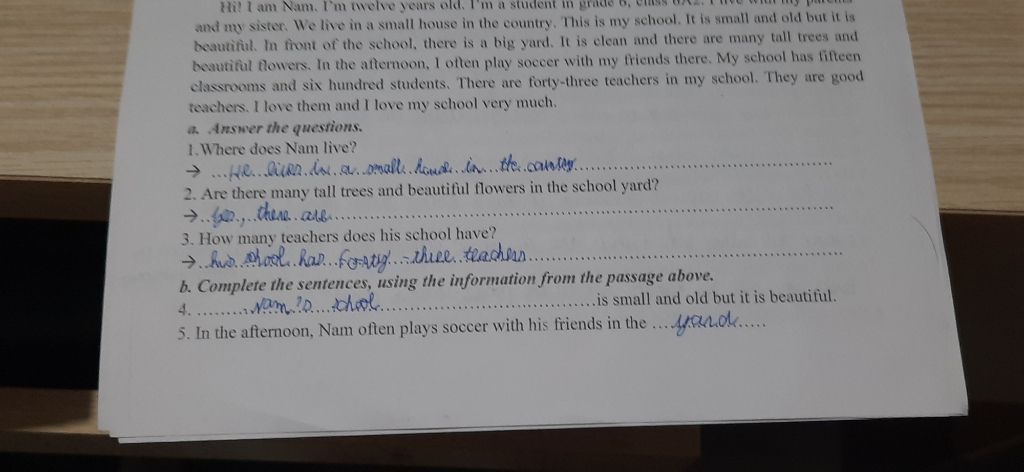 Hi! I am Nam. I'm twelve years old. I'm a student in grade 6, class 6A2. I live with my parents
and my sister. We live in a small house in the country. This is my school. It is small and old but it is
beautiful. In front of the school, there is a big yard. It is clean and there are many tall trees and
beautiful flowers. In the afternoon, I often play soccer with my friends there. My school has fifteen
classrooms and six hundred students. There are forty-three teachers in my school. They are good
teachers. I love them and I love my school very much.
a. Answer the questions.
1. Where does Nam live?
→ ...He lives in a small house in the
2. Are there many tall trees and beautiful flowers in the school yard?
→ ..Yes, there are..........
3. How many teachers does his school have?
→ ..his school has forty-three teachers..........
b. Complete the sentences, using the information from the passage above.
4. .........Nam's school..........is small and old but it is beautiful.
5. In the afternoon, Nam often plays soccer with his friends in the ....yard.....